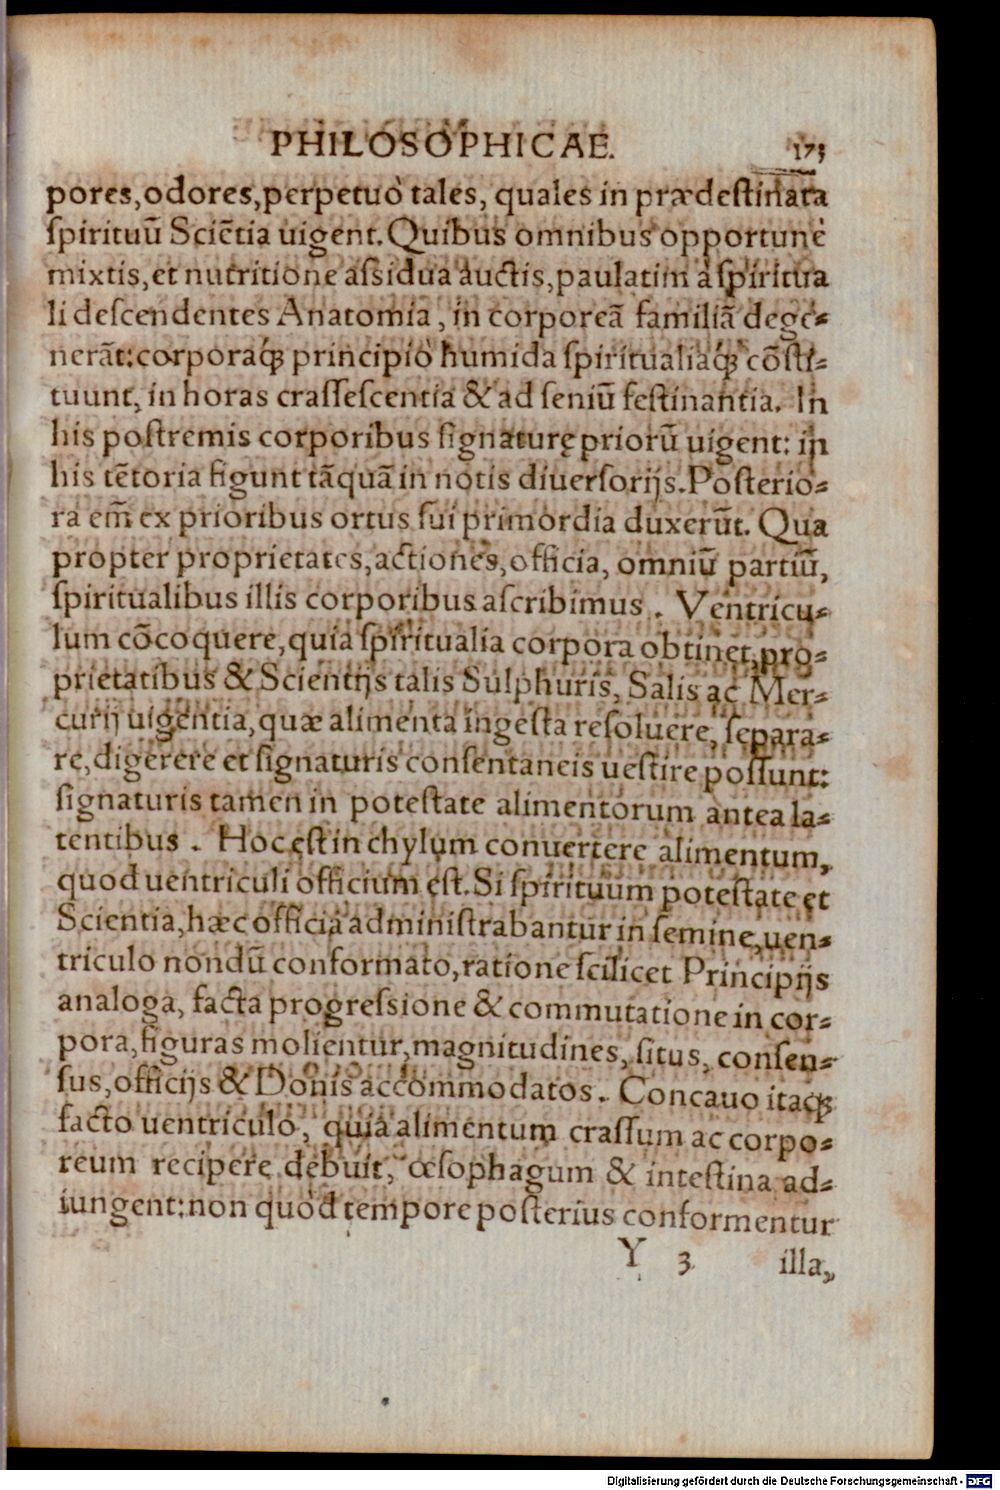 PHILOSOPHICAE. 173
pores, odores, perpetuò tales, quales in prædestinata
spirituũ Sciẽtia uigent. Quibus omnibus opportunè
mixtis, et nutritione assidua auctis, paulatim à spiritua
li descendentes Anatomia, in corporeã familiã dege-
nerãt: corporaq́; principiò humida spiritualiaq́; cõsti-
tuunt, in horas crassescentia & ad seniũ festinantia. In
his postremis corporibus signaturę priorũ uigent: in
his tẽtoria figunt tãquã in notis diuersorijs. Posterio-
ra em̃ ex prioribus ortus sui primordia duxerũt. Qua
propter proprietates, actiones, officia, omniũ partiũ,
spiritualibus illis corporibus ascribimus. Ventricu-
lum cõcoquere, quia spiritualia corpora obtinet, pro-
prietatibus & Scientijs talis Sulphuris, Salis ac Mer-
curij uigentia, quæ alimenta ingesta resoluere, separa-
re, digerere et signaturis consentaneis uestire possunt:
signaturis tamen in potestate alimentorum antea la-
tentibus. Hoc est in chylum conuertere alimentum,
quod uentriculi officium est. Si spirituum potestate et
Scientia, hæc officia administrabantur in semine, uen-
triculo nondũ conformato, ratione scilicet Principijs
analoga, facta progressione & commutatione in cor-
pora, figuras molientur, magnitudines, situs, consen-
sus, officijs & Donis accommodatos. Concauo itaq́;
facto uentriculo, quia alimentum crassum ac corpo-
reum recipere debuit, œsophagum & intestina ad-
iungent: non quòd tempore posterius conformentur
Y 3 illa,
Digitalisierung gefördert durch die Deutsche Forschungsgemeinschaft - DFG